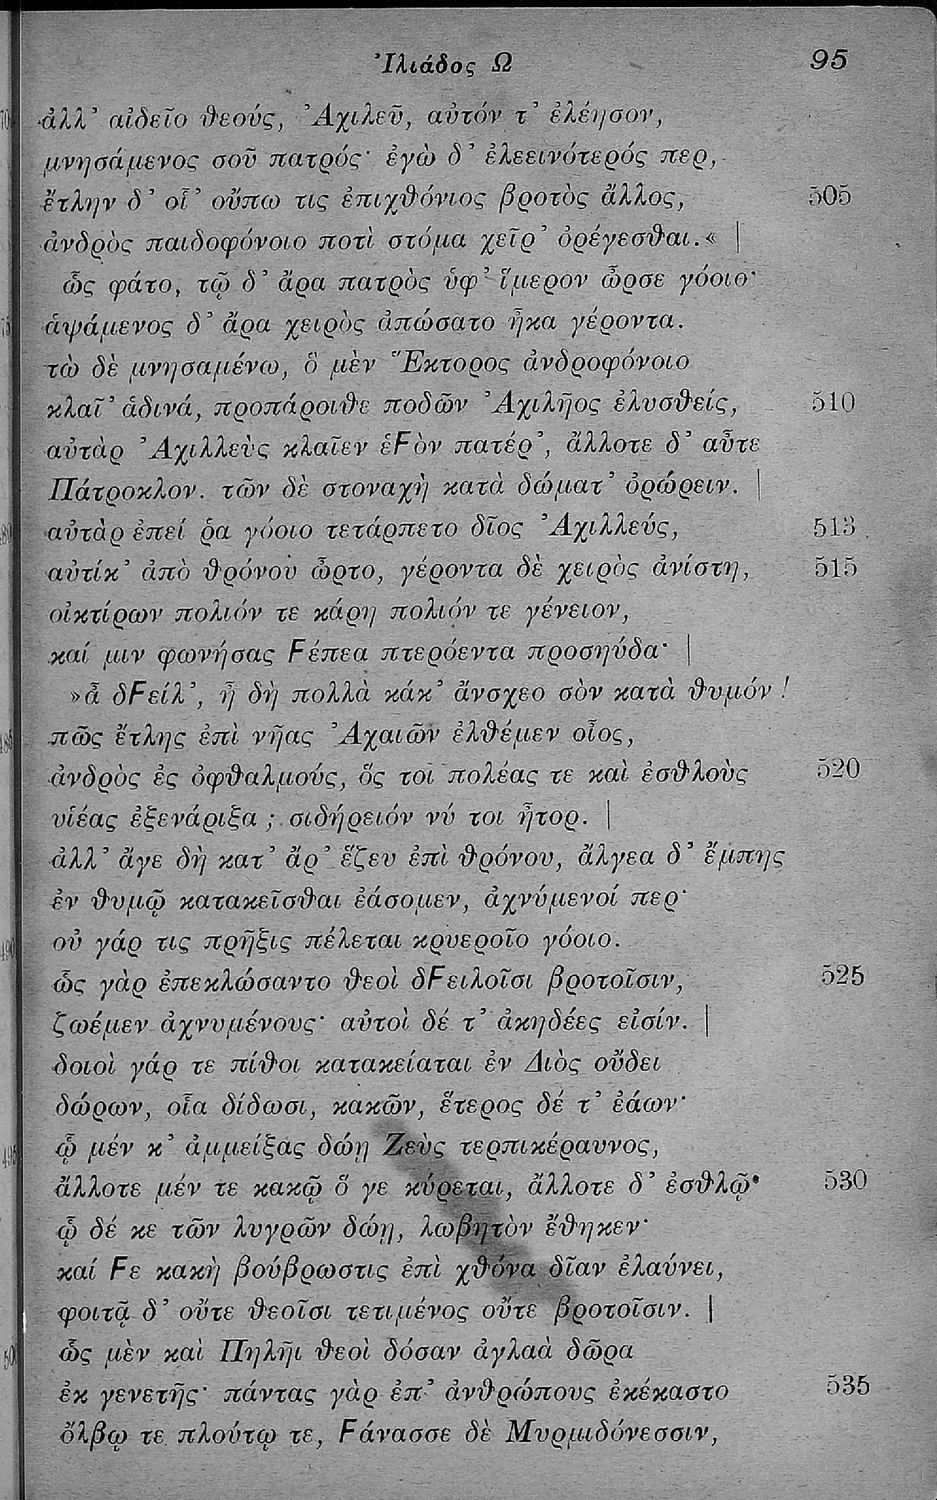 Ἰλιάδος Ω 95
ἀλλ' αἰδεῖο θεούς, Ἀχιλεῦ, αὐτόν τ' ἐλέησον,
μνησάμενος σοῦ πατρός· ἐγὼ δ' ἐλεεινότερός περ,
ἔτλην δ' οἷ' οὔπω τις ἐπιχθόνιος βροτὸς ἄλλος, 505
ἀνδρὸς παιδοφόνοιο ποτὶ στόμα χεῖρ' ὀρέγεσθαι.« |
ὣς φάτο, τῷ δ' ἄρα πατρὸς ὑφ' ἵμερον ὦρσε γόοιο·
ἁψάμενος δ' ἄρα χειρὸς ἀπώσατο ἦκα γέροντα.
τὼ δὲ μνησαμένω, ὃ μὲν Ἕκτορος ἀνδροφόνοιο
κλαῖ' ἁδινά, προπάροιθε ποδῶν Ἀχιλῆος ἐλυσθείς, 510
αὐτὰρ Ἀχιλλεὺς κλαῖεν ἑϜὸν πατέρ', ἄλλοτε δ' αὖτε
Πάτροκλον. τῶν δὲ στοναχὴ κατὰ δώματ' ὀρώρειν. |
αὐτὰρ ἐπεί ῥα γόοιο τετάρπετο δῖος Ἀχιλλεύς, 513
αὐτίκ' ἀπὸ θρόνου ὦρτο, γέροντα δὲ χειρὸς ἀνίστη, 515
οἰκτίρων πολιόν τε κάρη πολιόν τε γένειον,
καί μιν φωνήσας Ϝέπεα πτερόεντα προσηύδα· |
»ἆ δϜείλ', ἦ δὴ πολλὰ κάκ' ἄνσχεο σὸν κατὰ θυμόν!
πῶς ἔτλης ἐπὶ νῆας Ἀχαιῶν ἐλθέμεν οἶος,
ἀνδρὸς ἐς ὀφθαλμούς, ὅς τοι πολέας τε καὶ ἐσθλοὺς 520
υἱέας ἐξενάριξα; σιδήρειόν νύ τοι ἦτορ. |
ἀλλ' ἄγε δὴ κατ' ἄρ' ἕζευ ἐπὶ θρόνου, ἄλγεα δ' ἔμπης
ἐν θυμῷ κατακεῖσθαι ἐάσομεν, ἀχνύμενοί περ·
οὐ γάρ τις πρῆξις πέλεται κρυεροῖο γόοιο.
ὣς γὰρ ἐπεκλώσαντο θεοὶ δϜειλοῖσι βροτοῖσιν, 525
ζωέμεν ἀχνυμένους· αὐτοὶ δέ τ' ἀκηδέες εἰσίν. |
δοιοὶ γάρ τε πίθοι κατακείαται ἐν Διὸς οὔδει
δώρων, οἷα δίδωσι, κακῶν, ἕτερος δέ τ' ἐάων·
ᾧ μέν κ' ἀμμείξας δώῃ Ζεὺς τερπικέραυνος,
ἄλλοτε μέν τε κακῷ ὅ γε κύρεται, ἄλλοτε δ' ἐσθλῷ· 530
ᾧ δέ κε τῶν λυγρῶν δώῃ, λωβητὸν ἔθηκεν·
καί Ϝε κακὴ βούβρωστις ἐπὶ χθόνα δῖαν ἐλαύνει,
φοιτᾷ δ' οὔτε θεοῖσι τετιμένος οὔτε βροτοῖσιν. |
ὣς μὲν καὶ Πηλῆι θεοὶ δόσαν ἀγλαὰ δῶρα
ἐκ γενετῆς· πάντας γὰρ ἐπ' ἀνθρώπους ἐκέκαστο 535
ὄλβῳ τε πλούτῳ τε, Ϝάνασσε δὲ Μυρμιδόνεσσιν,